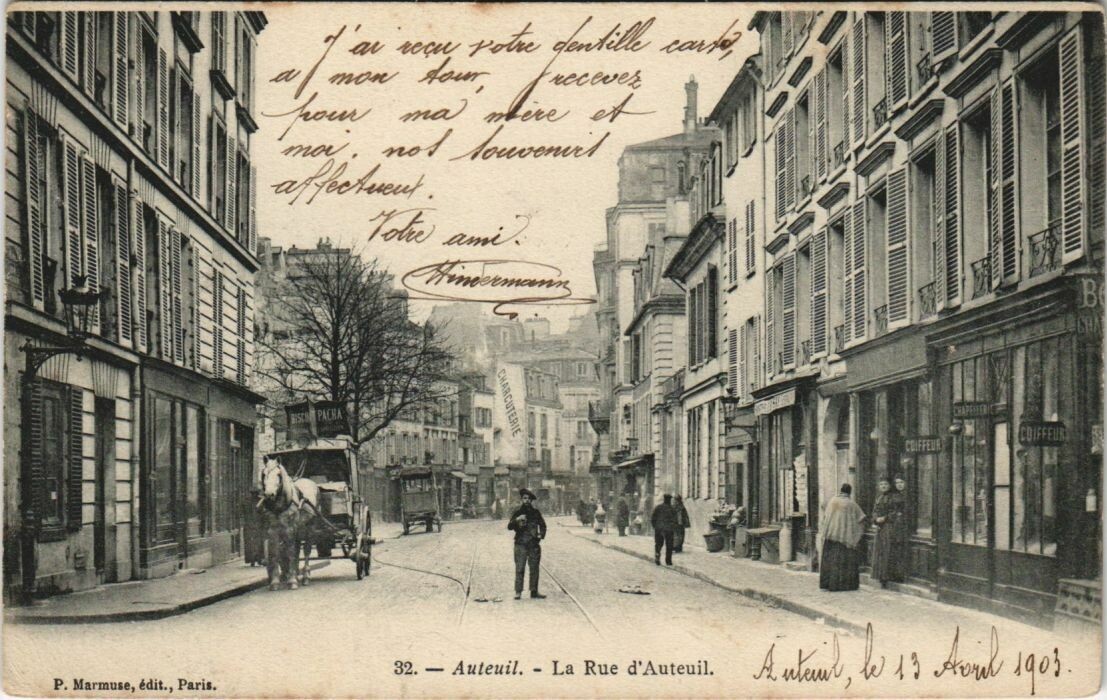 J'ai reçu votre gentille carte,
a mon tour, recevez
pour ma mère et
moi, nos souvenirs
affectueux.
Votre ami.
CHARCUTERIE
PACHA
COIFFEUR
COIFFEUR
32. — Auteuil. - La Rue d'Auteuil.
P. Marmuse, édit., Paris.
Auteuil, le 13 Avril 1903.